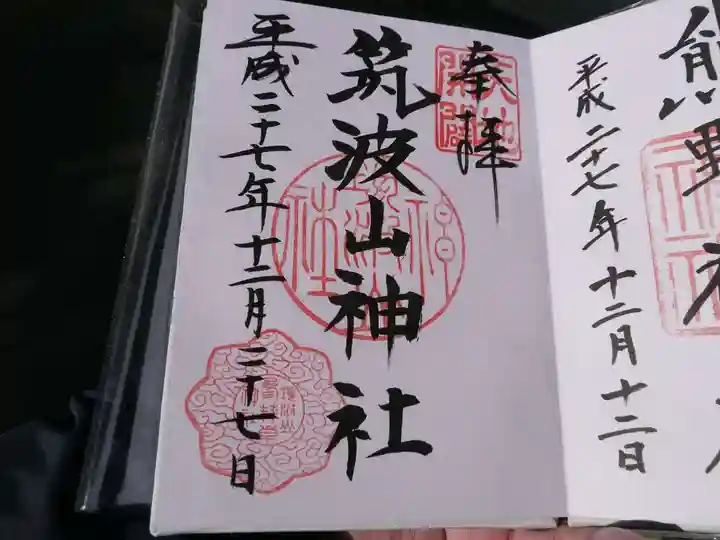 奉拝
天地
開闢
筑波山神社
平成二十七年十二月二十七日
熊野
平成二十七年十二月十二日